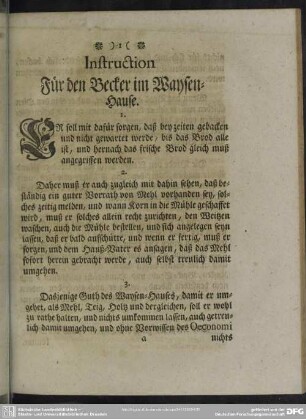 )1(
Instruction
Für den Becker im Waysen-
Hause.
1.
ER soll mit dafür sorgen, daß bey zeiten gebacken
und nicht gewartet werde, bis das Brod alle
ist, und hernach das frische Brod gleich muß
angegriffen werden.
2.
Daher muß er auch zugleich mit dahin sehen, daß be-
ständig ein guter Vorrath von Mehl vorhanden sey, sol-
ches zeitig melden, und wann Korn in die Mühle geschaffet
wird, muß er solches allein recht zurichten, den Weitzen
waschen, auch die Mühle bestellen, und sich angelegen seyn
lassen, daß er bald aufschütte, und wenn er fertig, muß er
sorgen, und dem Hauß-Vater es ansagen, daß das Mehl
sofort herein gebracht werde, auch selbst treulich damit
umgehen.
3.
Dasjenige Guth des Waysen-Hauses, damit er um-
gehet, als Mehl, Teig, Holtz und dergleichen, soll er wohl
zu rathe halten, und nichts umkommen lassen, auch getreu-
lich damit umgehen, und ohne Vorwissen des Oeconomi
a nichts